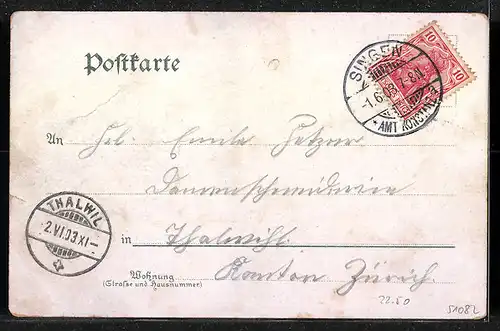 Postkarte
SINGEN
-1.6.03. 7-8N.
* AMT KONSTANZ
10 10
An Frl. Emilie
Damenschneiderin
THALWIL
2.VI.03 XI-
in Thalwihl
Wohnung
(Strasse und Hausnummer)
Kanton Zürich.
22.50
51082